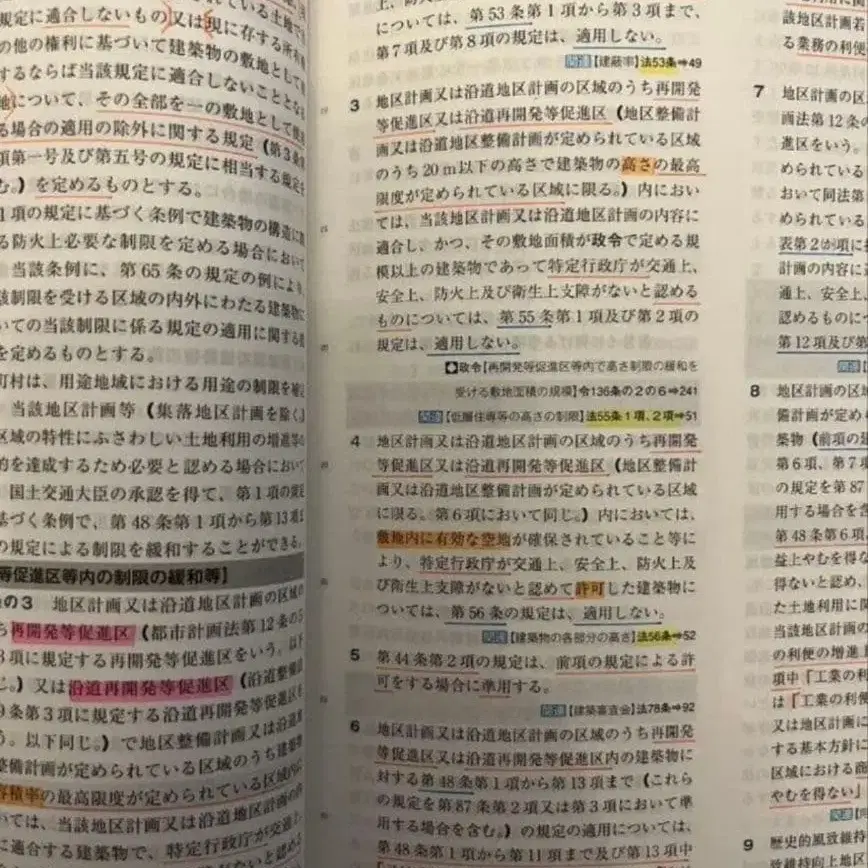 規定に適合しないもの又は現に存する所有
の他の権利に基づいて建築物の敷地として
するならば当該規定に適合しないこととなる
地について、その全部を一の敷地として使
る場合の適用の除外に関する規定（第3条
項第一号及び第五号の規定に相当する規定を
む。）を定めるものとする。
1項の規定に基づく条例で建築物の構造に
る防火上必要な制限を定める場合において
当該条例に、第65条の規定の例により、
該制限を受ける区域の内外にわたる建築物に
いての当該制限に係る規定の適用に関する
を定めるものとする。
町村は、用途地域における用途の制限を補
当該地区計画等（集落地区計画を除く。）
区域の特性にふさわしい土地利用の増進等の
的を達成するため必要と認める場合において
国土交通大臣の承認を得て、第1項の規定
基づく条例で、第48条第1項から第13項
の規定による制限を緩和することができる。
等促進区等内の制限の緩和等】
の3　地区計画又は沿道地区計画の区域の
ち再開発等促進区（都市計画法第12条の5
3項に規定する再開発等促進区をいう。以下
じ。）又は沿道再開発等促進区（沿道整備
9条第3項に規定する沿道再開発等促進区を
う。以下同じ。）で地区整備計画又は沿道地
整備計画が定められている区域のうち建築物
容積率の最高限度が定められている区域内に
いては、当該地区計画又は沿道地区計画の
に適合する建築物で、特定行政庁が交通上、
については、第53条第1項から第3項まで、
第7項及び第8項の規定は、適用しない。
関連【建蔽率】法53条⇒49
3　地区計画又は沿道地区計画の区域のうち再開発
等促進区又は沿道再開発等促進区（地区整備計
画又は沿道地区整備計画が定められている区域
のうち20m以下の高さで建築物の高さの最高
限度が定められている区域に限る。）内におい
ては、当該地区計画又は沿道地区計画の内容に
適合し、かつ、その敷地面積が政令で定める規
模以上の建築物であって特定行政庁が交通上、
安全上、防火上及び衛生上支障がないと認める
ものについては、第55条第1項及び第2項の
規定は、適用しない。
◆政令【再開発等促進区等内で高さ制限の緩和を
受ける敷地面積の規模】令136条の2の6⇒241
関連【低層住専等の高さの制限】法55条1項、2項⇒51
4　地区計画又は沿道地区計画の区域のうち再開発
等促進区又は沿道再開発等促進区（地区整備計
画又は沿道地区整備計画が定められている区域
に限る。第6項において同じ。）内においては、
敷地内に有効な空地が確保されていること等に
より、特定行政庁が交通上、安全上、防火上及
び衛生上支障がないと認めて許可した建築物に
ついては、第56条の規定は、適用しない。
関連【建築物の各部分の高さ】法56条⇒52
5　第44条第2項の規定は、前項の規定による許
可をする場合に準用する。
関連【建築審査会】法78条⇒92
6　地区計画又は沿道地区計画の区域のうち再開発
等促進区又は沿道再開発等促進区内の建築物に
対する第48条第1項から第13項まで（これら
の規定を第87条第2項又は第3項において準
用する場合を含む。）の規定の適用については、
第48条第1項から第11項まで及び第13項中
該地区計画若
る業務の利便
7　地区計画の区
画法第12条の
進区をいう。
められている
おいて同法第
められている
表第2か項に
計画の内容に
通上、安全上、
認めるものにつ
第12項及び第
関連
8　地区計画の区域
備計画が定め
築物（前項の建
第6項、第7項
の規定を第87
用する場合を含
第48条第6項、
益上やむを得な
得ないと認め、
た土地利用に関
当該地区計画の
の利便の増進上
項中「工業の利
は「工業の利便
又は地区計画に
する基本方針に
区域における商
やむを得ない」
関連
9　歴史的風致維持